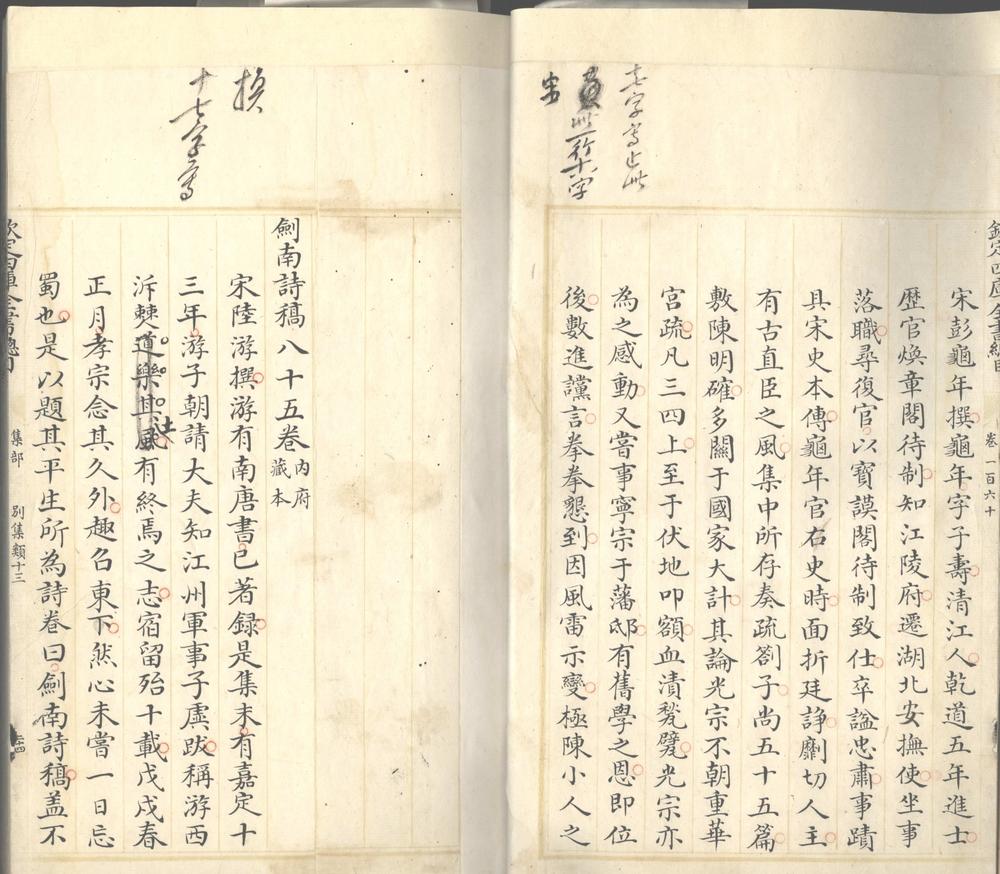 欽定四庫全書總目
卷一百六十
七字寫止此
此一行六字
宋彭龜年撰龜年字子壽清江人乾道五年進士
歷官煥章閣待制知江陵府遷湖北安撫使坐事
落職尋復官以寶謨閣待制致仕卒諡忠肅事蹟
具宋史本傳龜年官右史時面折廷諍劘切人主
有古直臣之風集中所存奏疏劄子尚五十五篇
敷陳明確多關于國家大計其論光宗不朝重華
宮疏凡三四上至于伏地叩額血漬甃甓光宗亦
為之感動又嘗事寧宗于藩邸有舊學之恩即位
後數進讜言拳拳懇到因風雷示變極陳小人之
換
十七字寫
劍南詩稿八十五卷內府藏本
宋陸游撰游有南唐書已著録是集末有嘉定十
三年游子朝請大夫知江州軍事子虡跋稱游西
泝僰道樂其風土有終焉之志宿留殆十載戊戌春
正月孝宗念其久外趣召東下然心未嘗一日忘
蜀也是以題其平生所為詩卷曰劍南詩稿蓋不
欽定四庫全書總目
集部
別集類十三